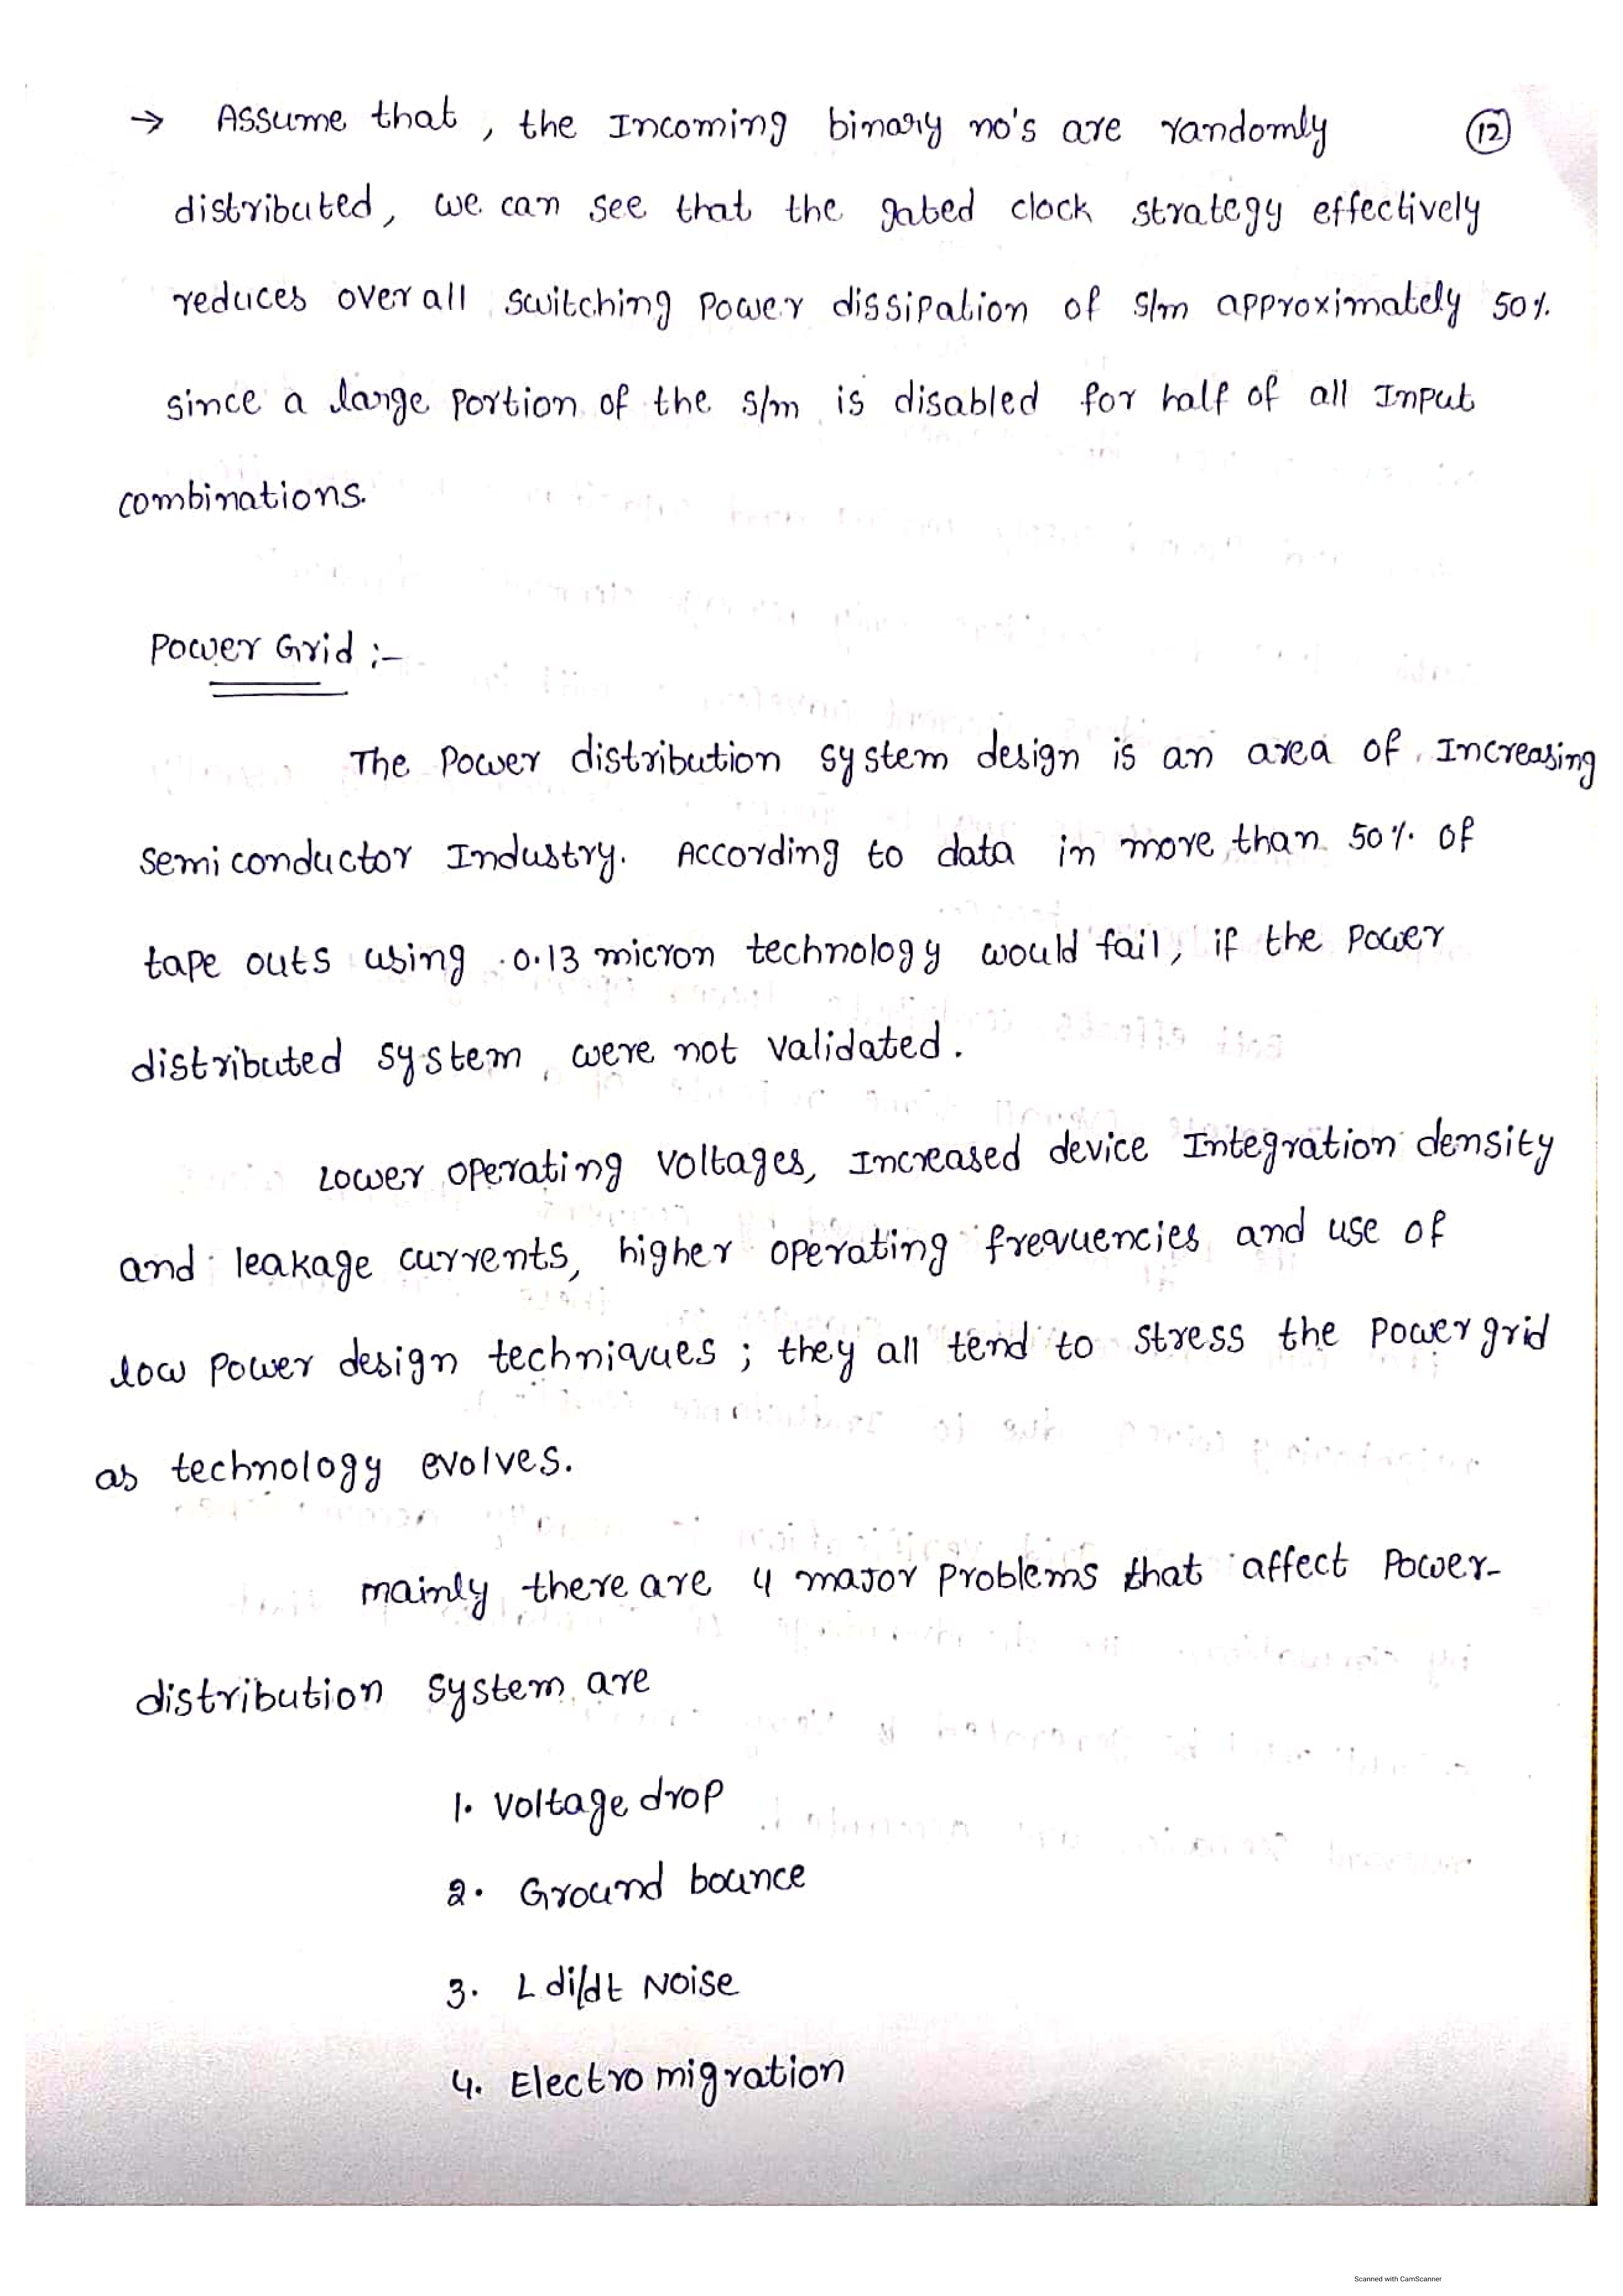 → Assume that, the Incoming binary no's are randomly
12
distributed, we can see that the gated clock strategy effectively
reduces over all switching Power dissipation of s/m approximately 50%
since a large portion of the s/m is disabled for half of all Input
combinations.
Power Grid :-
The Power distribution system design is an area of Increasing
semi conductor Industry. According to data in more than 50% of
tape outs using 0.13 micron technology would fail, if the power
distributed system were not validated.
Lower operating voltages, Increased device Integration density
and leakage currents, higher operating frequencies and use of
low power design techniques ; they all tend to stress the power grid
as technology evolves.
mainly there are 4 major problems that affect Power-
distribution system are
1. Voltage drop
2. Ground bounce
3. L di/dt Noise
4. Electro migration
Scanned with CamScanner